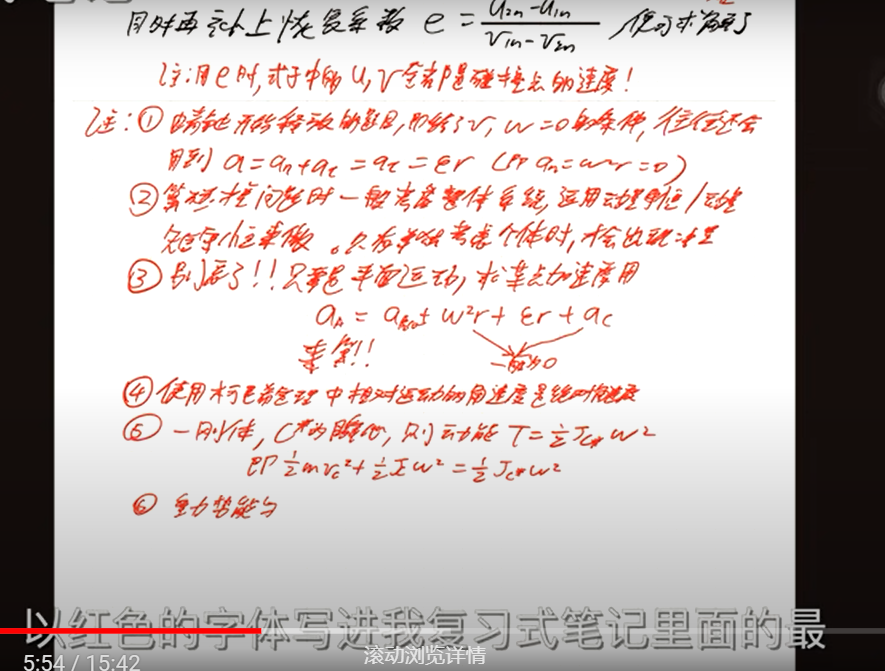 同时再之上恢复系数 e = (u₂ₙ-u₁ₙ)/(v₁ₙ-v₂ₙ) 便可求解了
注:用e时,式子中的u,v全都是碰撞点的速度!
注:① 由静止开始释放的题目,即给了v, ω=0的条件,往往还会
用到 a=aₙ+aτ=aτ=εr (即 aₙ=ω²r=0)
② 算碰撞问题时一般考虑整体系统,运用动量守恒/动量
矩守恒来做。只有单独考虑个体时,才会出现冲量
③ 别忘了!!只要是平面运动,求某点加速度用
a_A = + ω²r + εr + a_C
一般为0
④ 使用 定理中相对运动的角速度是绝对角速度
⑤ 一刚体,C*为瞬心,则动能 T=½J_C*ω²
即½mv_C²+½Jω²=½J_C*ω²
⑥ 重力势能与
以红色的字体写进我复习式笔记里面的最
5:54 / 15:42
滚动浏览详情